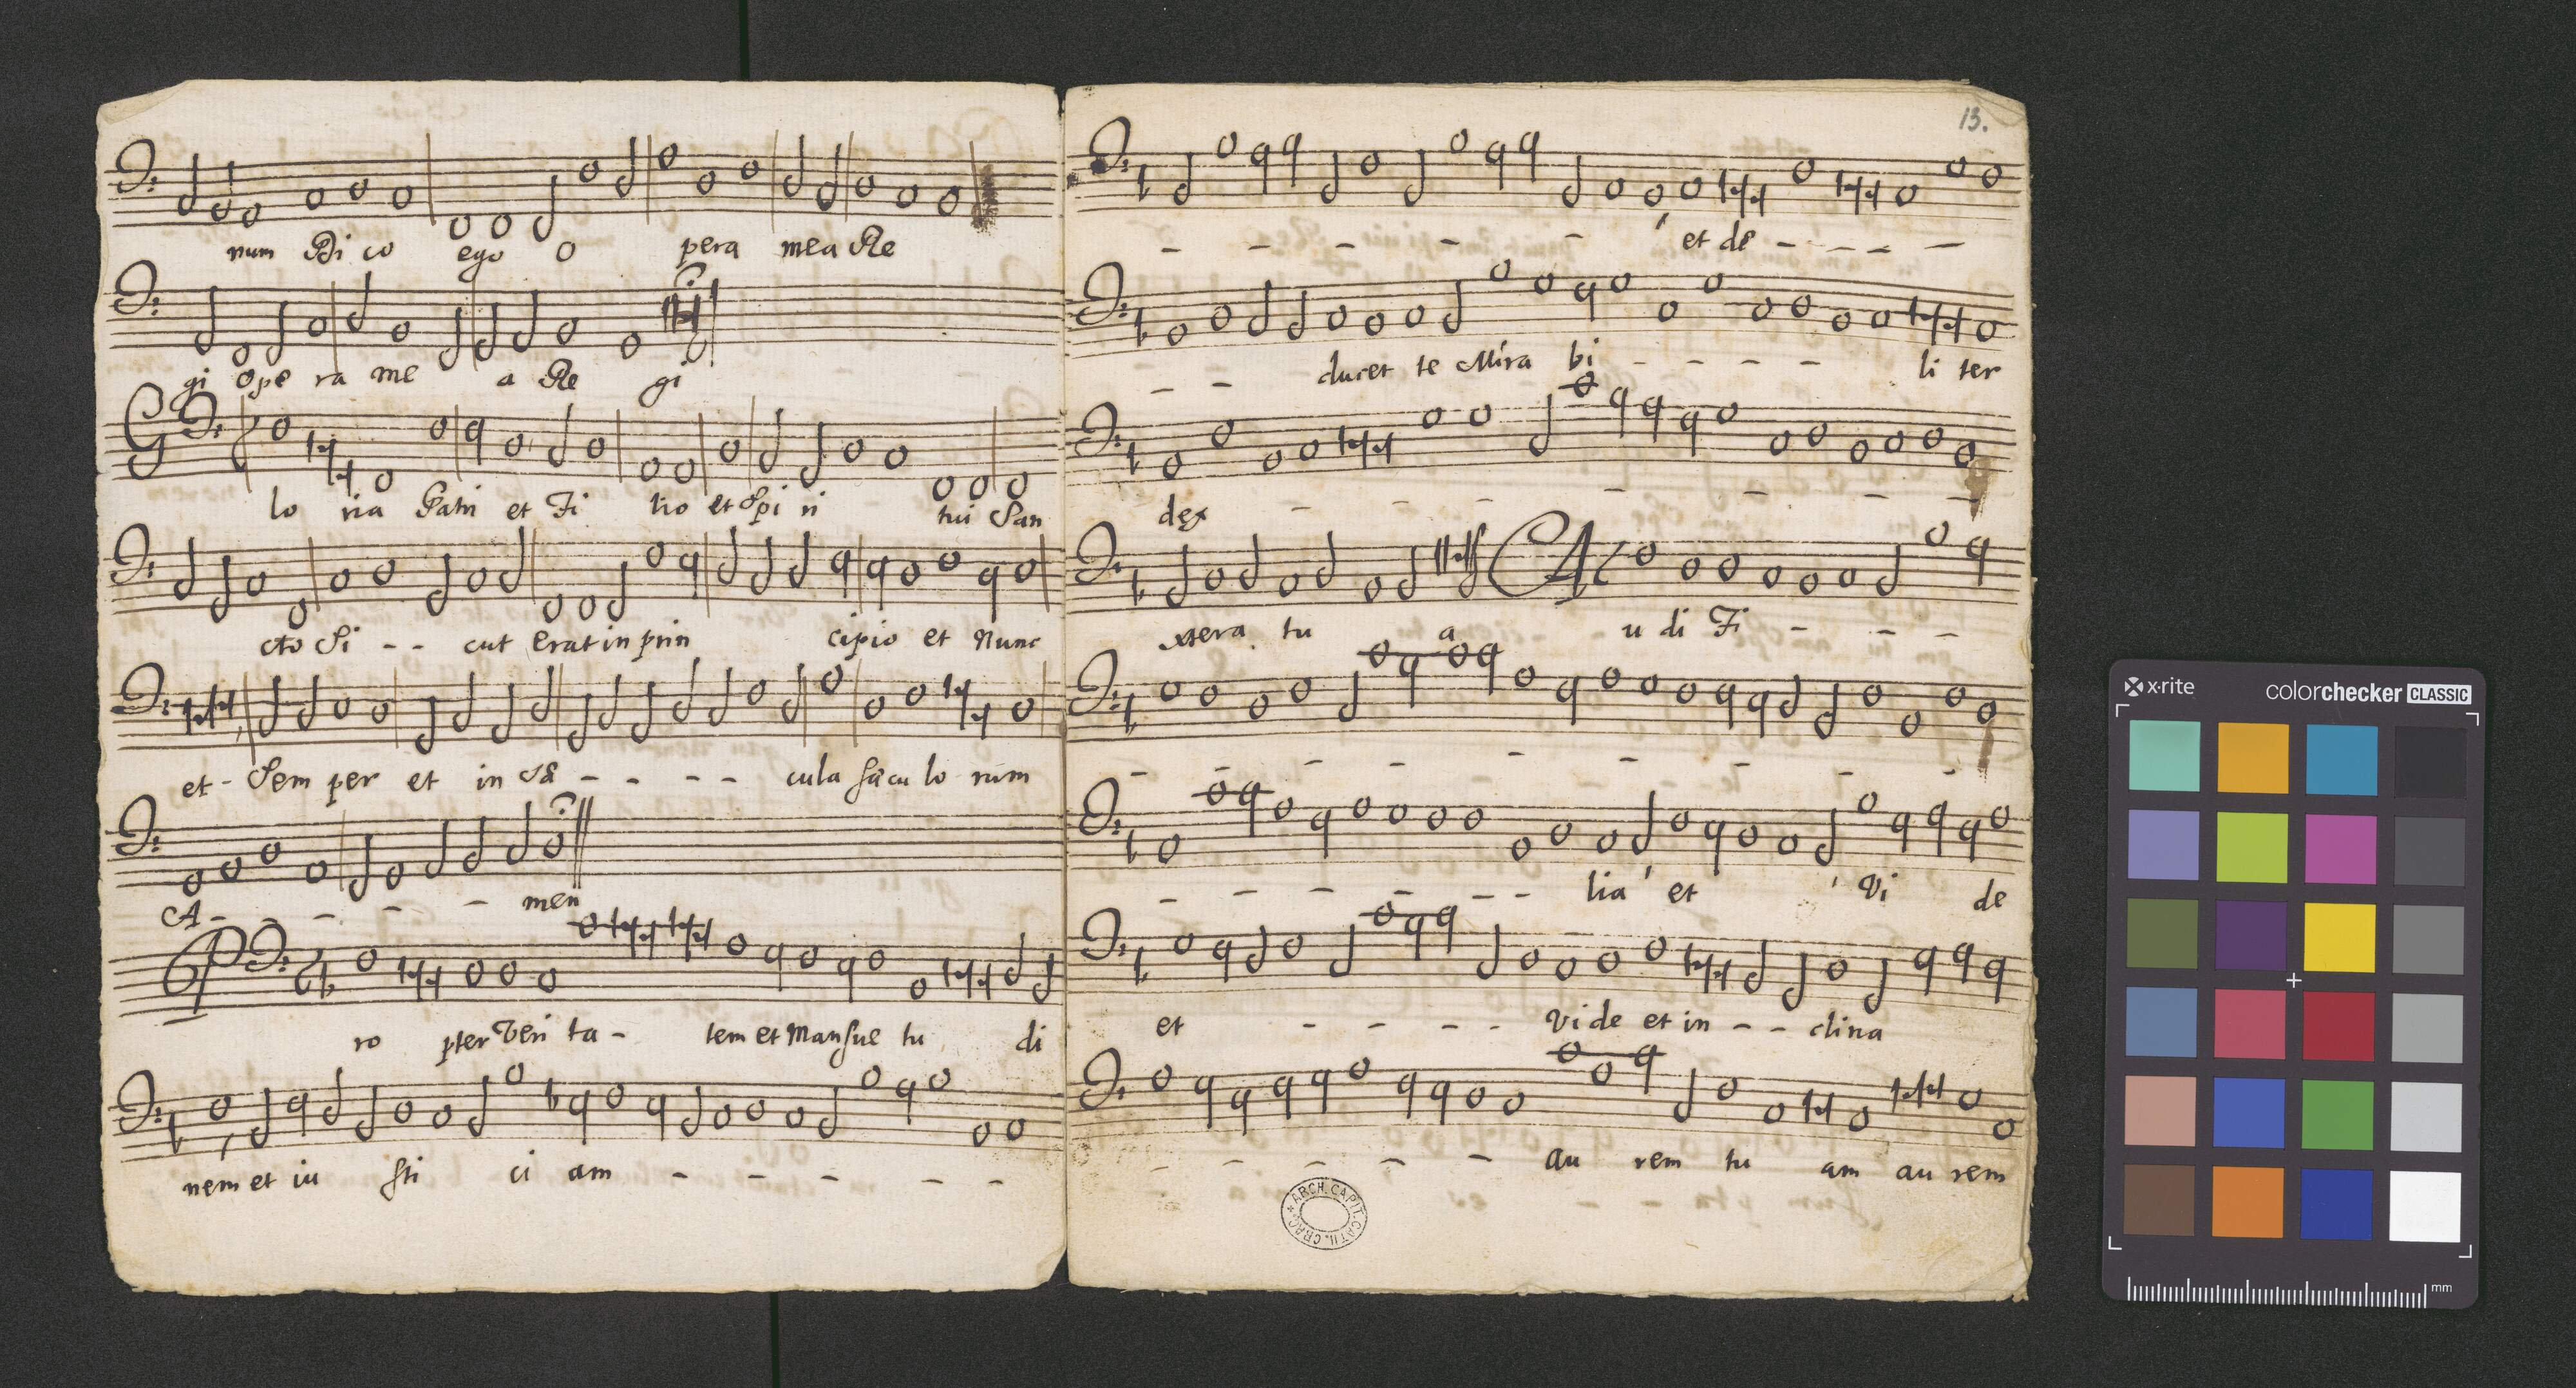 num Di co ego O pera mea Re
gi ope ra me a Re gi
G lo ria Patri et Fi lio et Spi ri tui San
cto Si - - cut erat in prin cipio et Nunc
et - Sem per et in Sæ - - - - cula sæcu lo rum
A - - - - - men
P ro pter Veri ta - tem et Mansue tu di
nem et iu sti ci am - - - - -
13.
- - - - - et de - - - - -
- - ducet te Mira bi - - - - - li ter
dex - - - - - - -
xtera tu a A u di Fi - - -
- - - - - - - -
- - - - - - lia et Vi de
et - - - - Vide et in - - clina
- - - - - au rem tu am au rem
ARCH. CAPIT. CATH. CRAC.
x-rite
colorchecker CLASSIC
mm